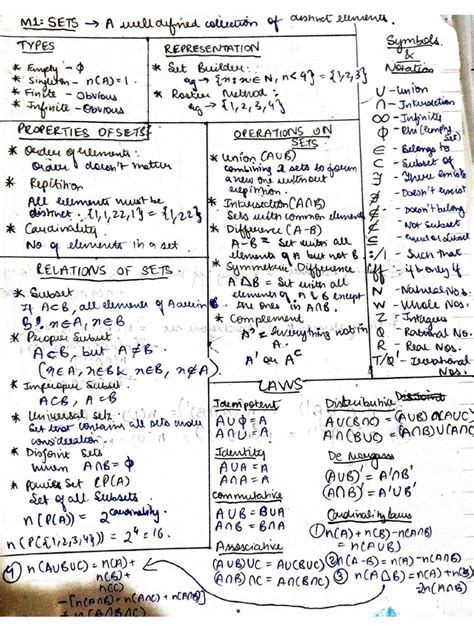 M1: SETS → A well defined collection of distinct elements.
TYPES
* Empty - ϕ
* Singleton - n(A)=1.
* Finite - Obvious
* Infinite - Obvious
REPRESENTATION
* Set Builder:
eg → {n: n∈N, n<4} = {1,2,3}
* Roster Method:
eg → {1,2,3,4}
Symbols
&
Notation
U - Union
∩ - Intersection
∞ - Infinity
ϕ - Phi (empty set)
∈ - Belongs to
⊂ - Subset of
∃ - There exists
∄ - Doesn't exist
∉ - Doesn't belong
⊄ - Not Subset
: / | - Such that
iff - if & only if
N - Natural Nos.
W - Whole Nos.
Z - Integers
Q - Rational No.
R - Real Nos.
T/Q' - Irrational Nos.
PROPERTIES OF SETS
* Order of elements:
Order doesn't matter
* Repitition
All elements must be
distinct. {1,1,22,1} = {1,22}
* Cardinality
No. of elements in a set.
OPERATIONS ON
SETS
* Union (AUB)
combining 2 sets to form
a new one without
repitition.
* Intersection (A∩B)
Sets with common elements
* Difference (A-B)
A-B = Set with all
elements of A but not B.
* Symmetric Difference
A Δ B = Set with all
elements of A & B except
the ones in A∩B.
* Complement
A' = Everything not in
A.
A' or Aᶜ
RELATIONS OF SETS.
* Subset
If A⊂B, all elements of A are in
B, n∈A, n∈B
* Proper Subset
A⊂B, but A≠B
* Improper Subset
A⊂B, A=B
* Universal Set
Set that contains all sets under
consideration.
* Disjoint Sets
when A∩B = ϕ
* Power Set (P(A))
Set of all Subsets.
n(P(A)) = 2^cardinality
n(P({1,2,3,4})) = 2⁴ = 16.
LAWS
Idempotent
AUϕ = A
AUU = A
Identity
AUA = A
A∩A = A
Commutative
AUB = BUA
A∩B = B∩A
Associative
(AUB)UC = AU(BUC)
(A∩B)∩C = A∩(B∩C)
Distributive
AU(B∩C) = (AUB)∩(AUC)
A∩(BUC) = (A∩B)U(A∩C)
De Morgans
(AUB)' = A'∩B'
(A∩B)' = A'UB'
Cardinality laws
① n(A)+n(B)-n(A∩B)
= n(AUB)
② n(A-B) = n(A)-n(A∩B)
③ n(AΔB) = n(A)+n(B)
-2n(A∩B)
④ n(AUBUC) = n(A)+
n(B)+
n(C)
-[n(A∩B)+n(A∩C)+n(B∩C)]
+n(A∩B∩C)